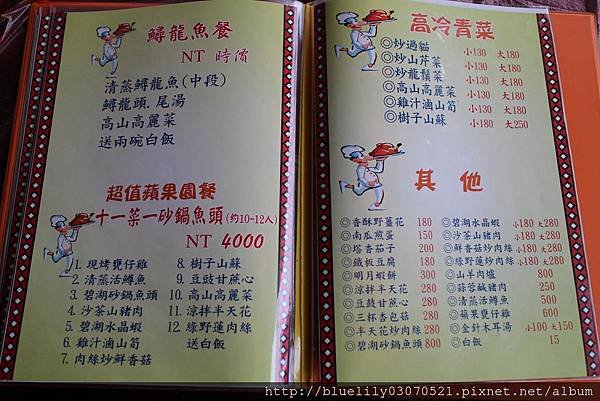 鱘龍魚餐
NT 時價
清蒸鱘龍魚(中段)
鱘龍頭.尾湯
高山高麗菜
送兩碗白飯
超值蘋果園餐
十一菜一砂鍋魚頭(約10-12人)
NT 4000
1. 現烤甕仔雞
2. 清蒸活鱒魚
3. 碧湖砂鍋魚頭
4. 沙茶山豬肉
5. 碧湖水晶蝦
6. 雞汁滷山筍
7. 肉絲炒鮮香菇
8. 樹子山蘇
9. 豆豉甘蔗心
10. 高山高麗菜
11. 涼拌半天花
12. 綠野蓮肉絲
送白飯
高冷青菜
◎炒過貓 小130 大180
◎炒山芹菜 小130 大180
◎炒龍鬚菜 小130 大180
◎高山高麗菜 小130 大180
◎雞汁滷山筍 小130 大180
◎樹子山蘇 小180 大250
其他
◎香酥野薑花 180
◎南瓜煎蛋 150
◎塔香茄子 200
◎鐵板豆腐 180
◎明月蝦餅 300
◎涼拌半天花 280
◎豆豉甘蔗心 280
◎三杯杏包菇 280
◎半天花炒肉絲 280
◎碧湖砂鍋魚頭 800
◎碧湖水晶蝦 小180 大280
◎沙茶山豬肉 小180 大280
◎鮮香菇炒肉絲 小180 大280
◎綠野蓮炒肉絲 小180 大280
◎山羊肉爐 800
◎蒜蓉鹹豬肉 250
◎清蒸活鱒魚 500
◎蘋果甕仔雞 600
◎金針木耳湯 小100 大150
◎白飯 15
http://bluelily03070521.pixnet.net/album